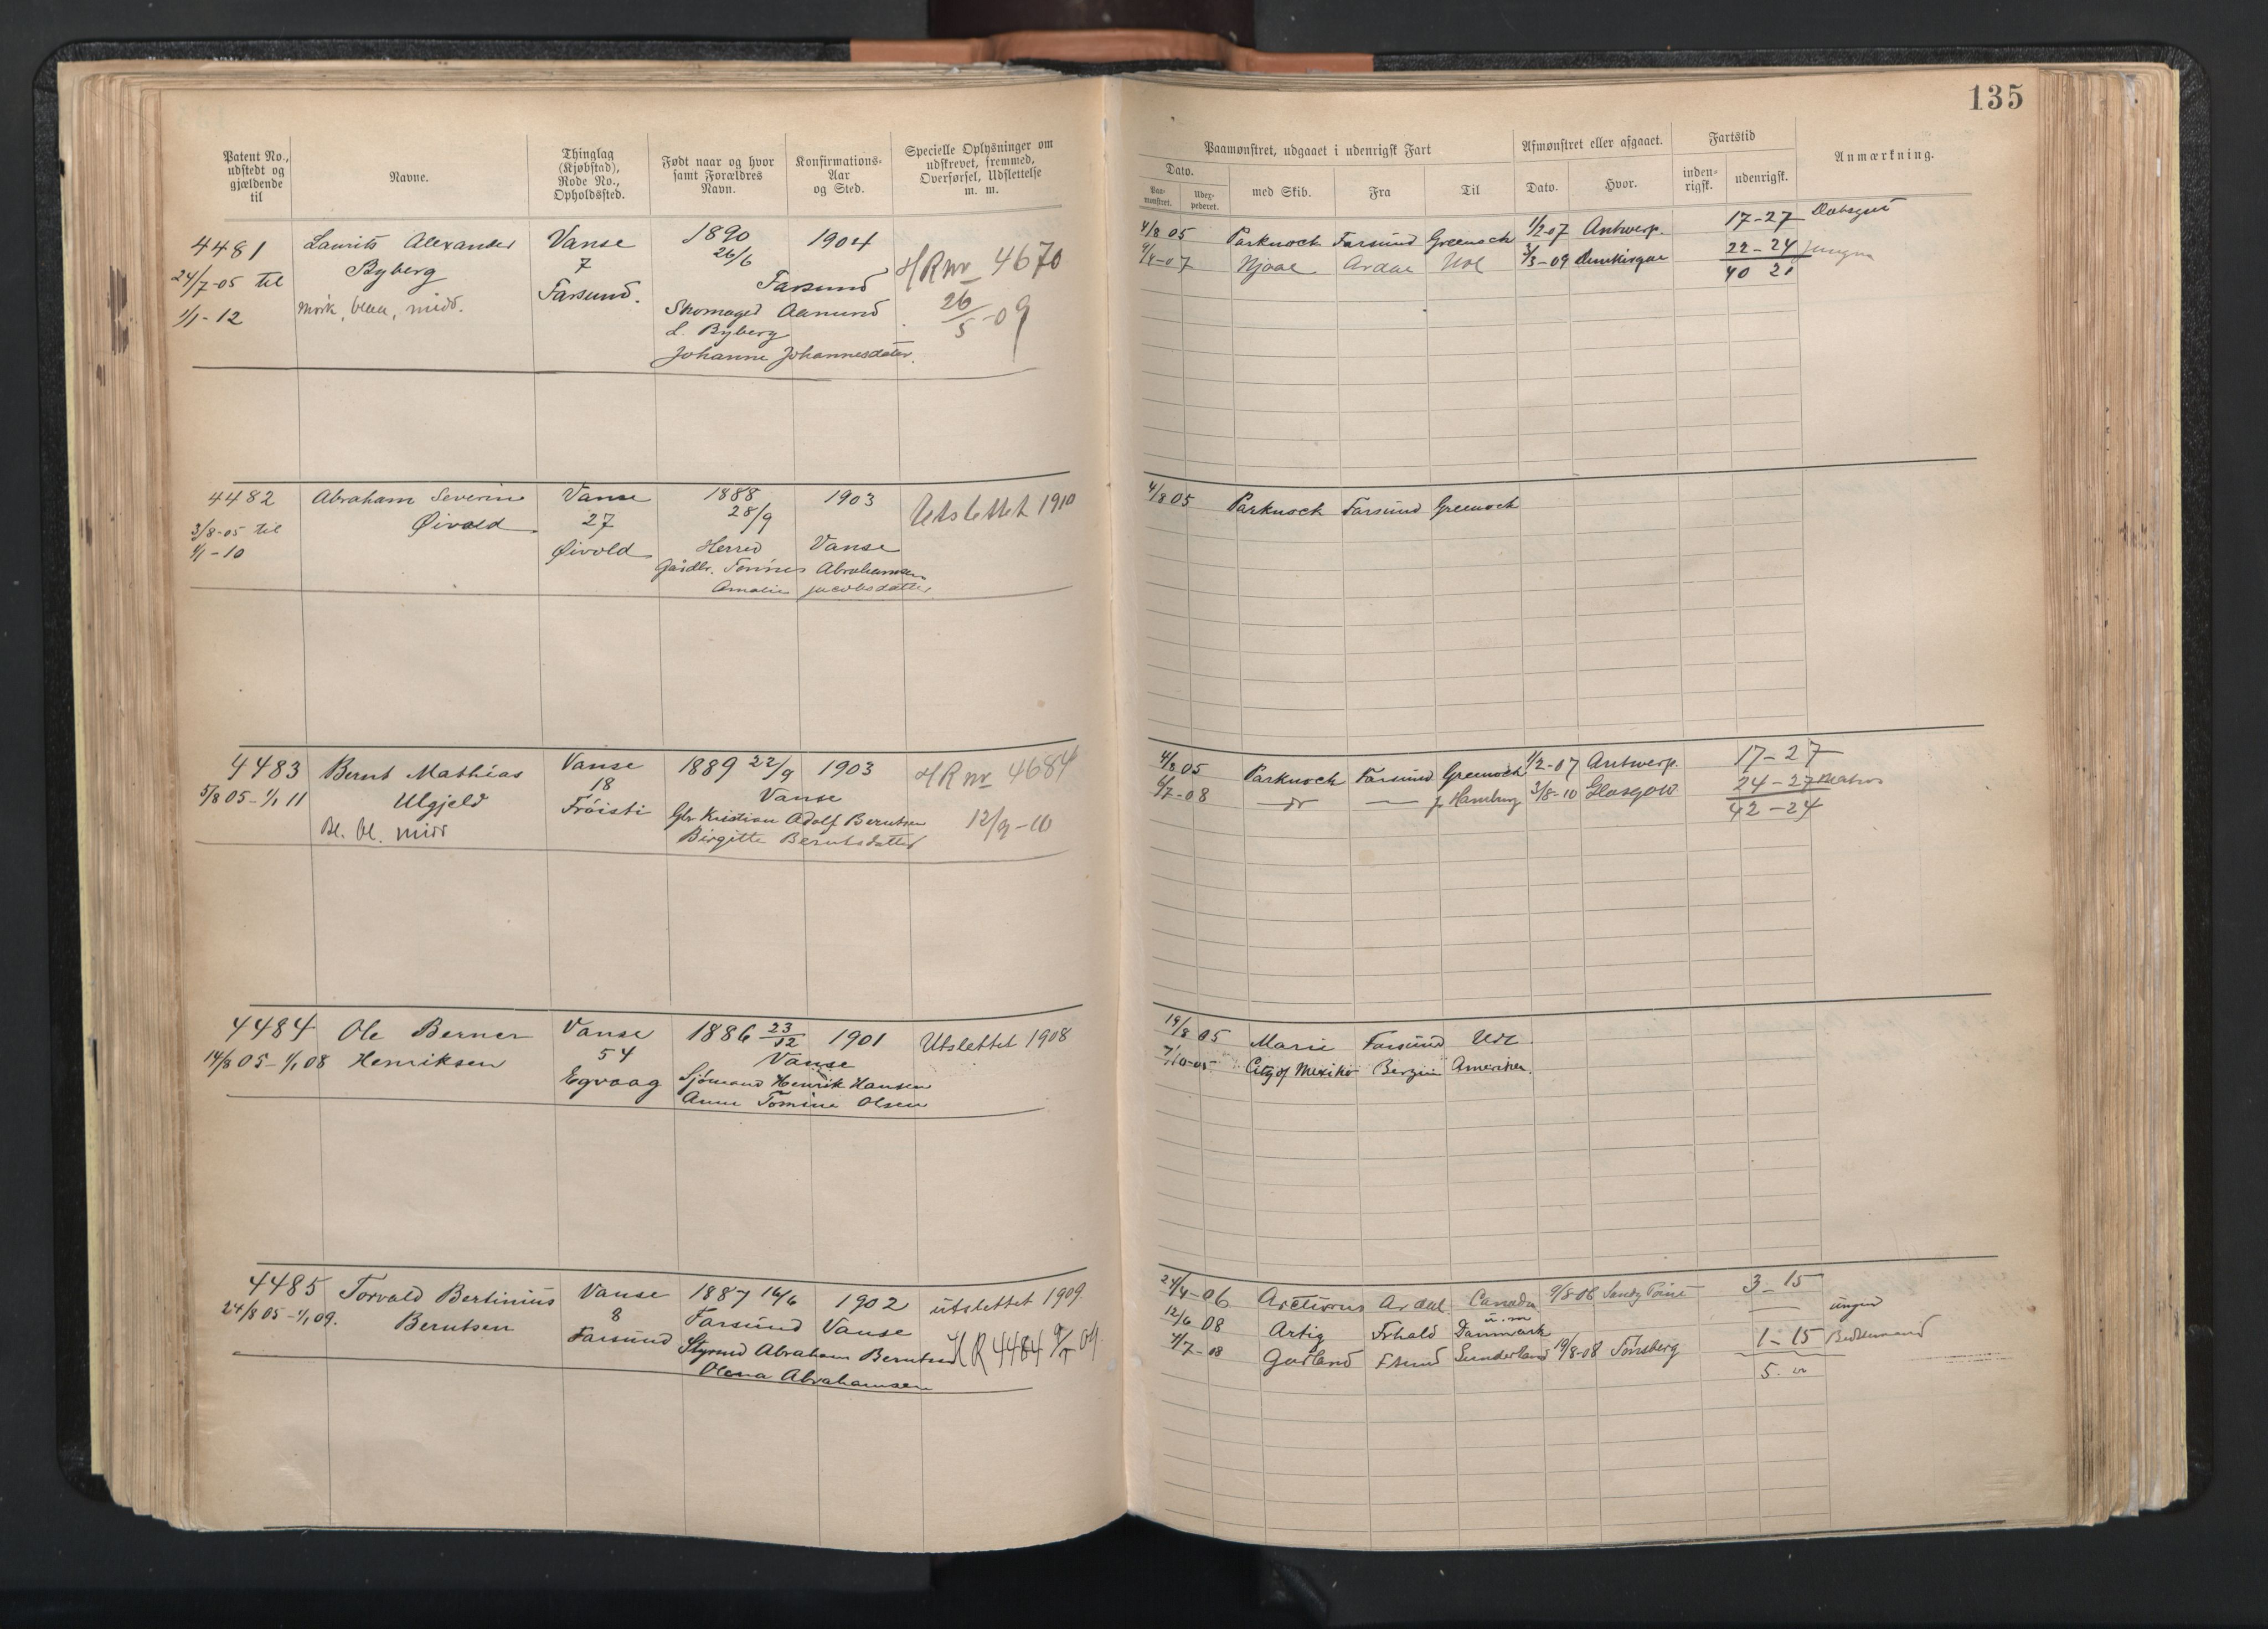 135
Patent No., udstedt og gjældende til
Navne.
Thinglag (Kjøbstad), Rode No., Opholdssted.
Født naar og hvor samt Forældres Navn.
Konfirmations-Aar og Sted.
Specielle Oplysninger om udskrevet, fremmed, Overførsel, Udslettelse m. m.
Paamønstret, udgaaet i udenrigsk Fart
Afmønstret eller afgaaet.
Fartstid
Anmærkning.
Dato.
Paa-mønstret.
Udex-pederet.
med Skib.
Fra
Til
Dato.
Hvor.
inden-rigsk.
udenrigsk.
4481
24/7-05 til
1/1-12
Laurits Alexander
Byberg
Mørk, blaa, midd.
Vanse
7
Farsund.
1890
26/6
Farsund
Skomager Aanund
L. Byberg
Johanne Johannesdatter.
1904
HRnr 4670
26/5-09
4/8 05 Parknock Farsund Greenock 1/2-07 Antwerp. 17-27 Dæksgut
Njaal Ardal Udl 3/3-09 22-24
40 21
4482
3/8-05 til
1/1-10
Abraham Severin
Øivold
Vanse
27
Øivold
1888
28/9
Herred
Gårdbr. Tønnes Abrahamsen
Amalie Jacobsdatter
1903
Vanse
Utslettet 1910
4/8 05 Parknock Farsund Greenock
4483
5/8 05-1/1 11
Bernt Mathias
Ulgjeld
Bl. bl. midd
Vanse
18
Frøisti
1889 22/9
Vanse
Gbr Kristian Adolf Berntsen
Birgitte Berntsdatter
1903
HRnr 4684
12/9-10
4/8 05 Parknock Farsund Greenock 1/2-07 Antwerp. 17-27
6/7-08 — do — Hamburg 3/8-10 Glasgow 24-27 Matros
42-24
4484
14/8 05-1/1 08
Ole Berner
Henriksen
Vanse
54
Egvaag
1886 23/12
Vanse
Sjømand Henrik Hansen
Anne Tomine Olsen
1901
Utslettet 1908
19/8 05 Marie Farsund Udl.
7/10-05 City of Mexiko Bergen Amerika.
4485
24/8 05-1/1 09.
Torvald Bertinius
Berntsen
Vanse
8
Farsund
1887 16/6
Farsund
Styrmd Abraham Berntsen
Olena Abrahamsen
1902
Vanse
utslettet 1909.
HR 4484
24/4-06 Arcturus Ardal Canada 9/8-06 Sandy Point 3-15
12/6 08 Artig Frhald Danmark u.m ungm
4/7-08 Gotland Fsund Sunderland 19/8-08 Tønsberg 1-15
5. "